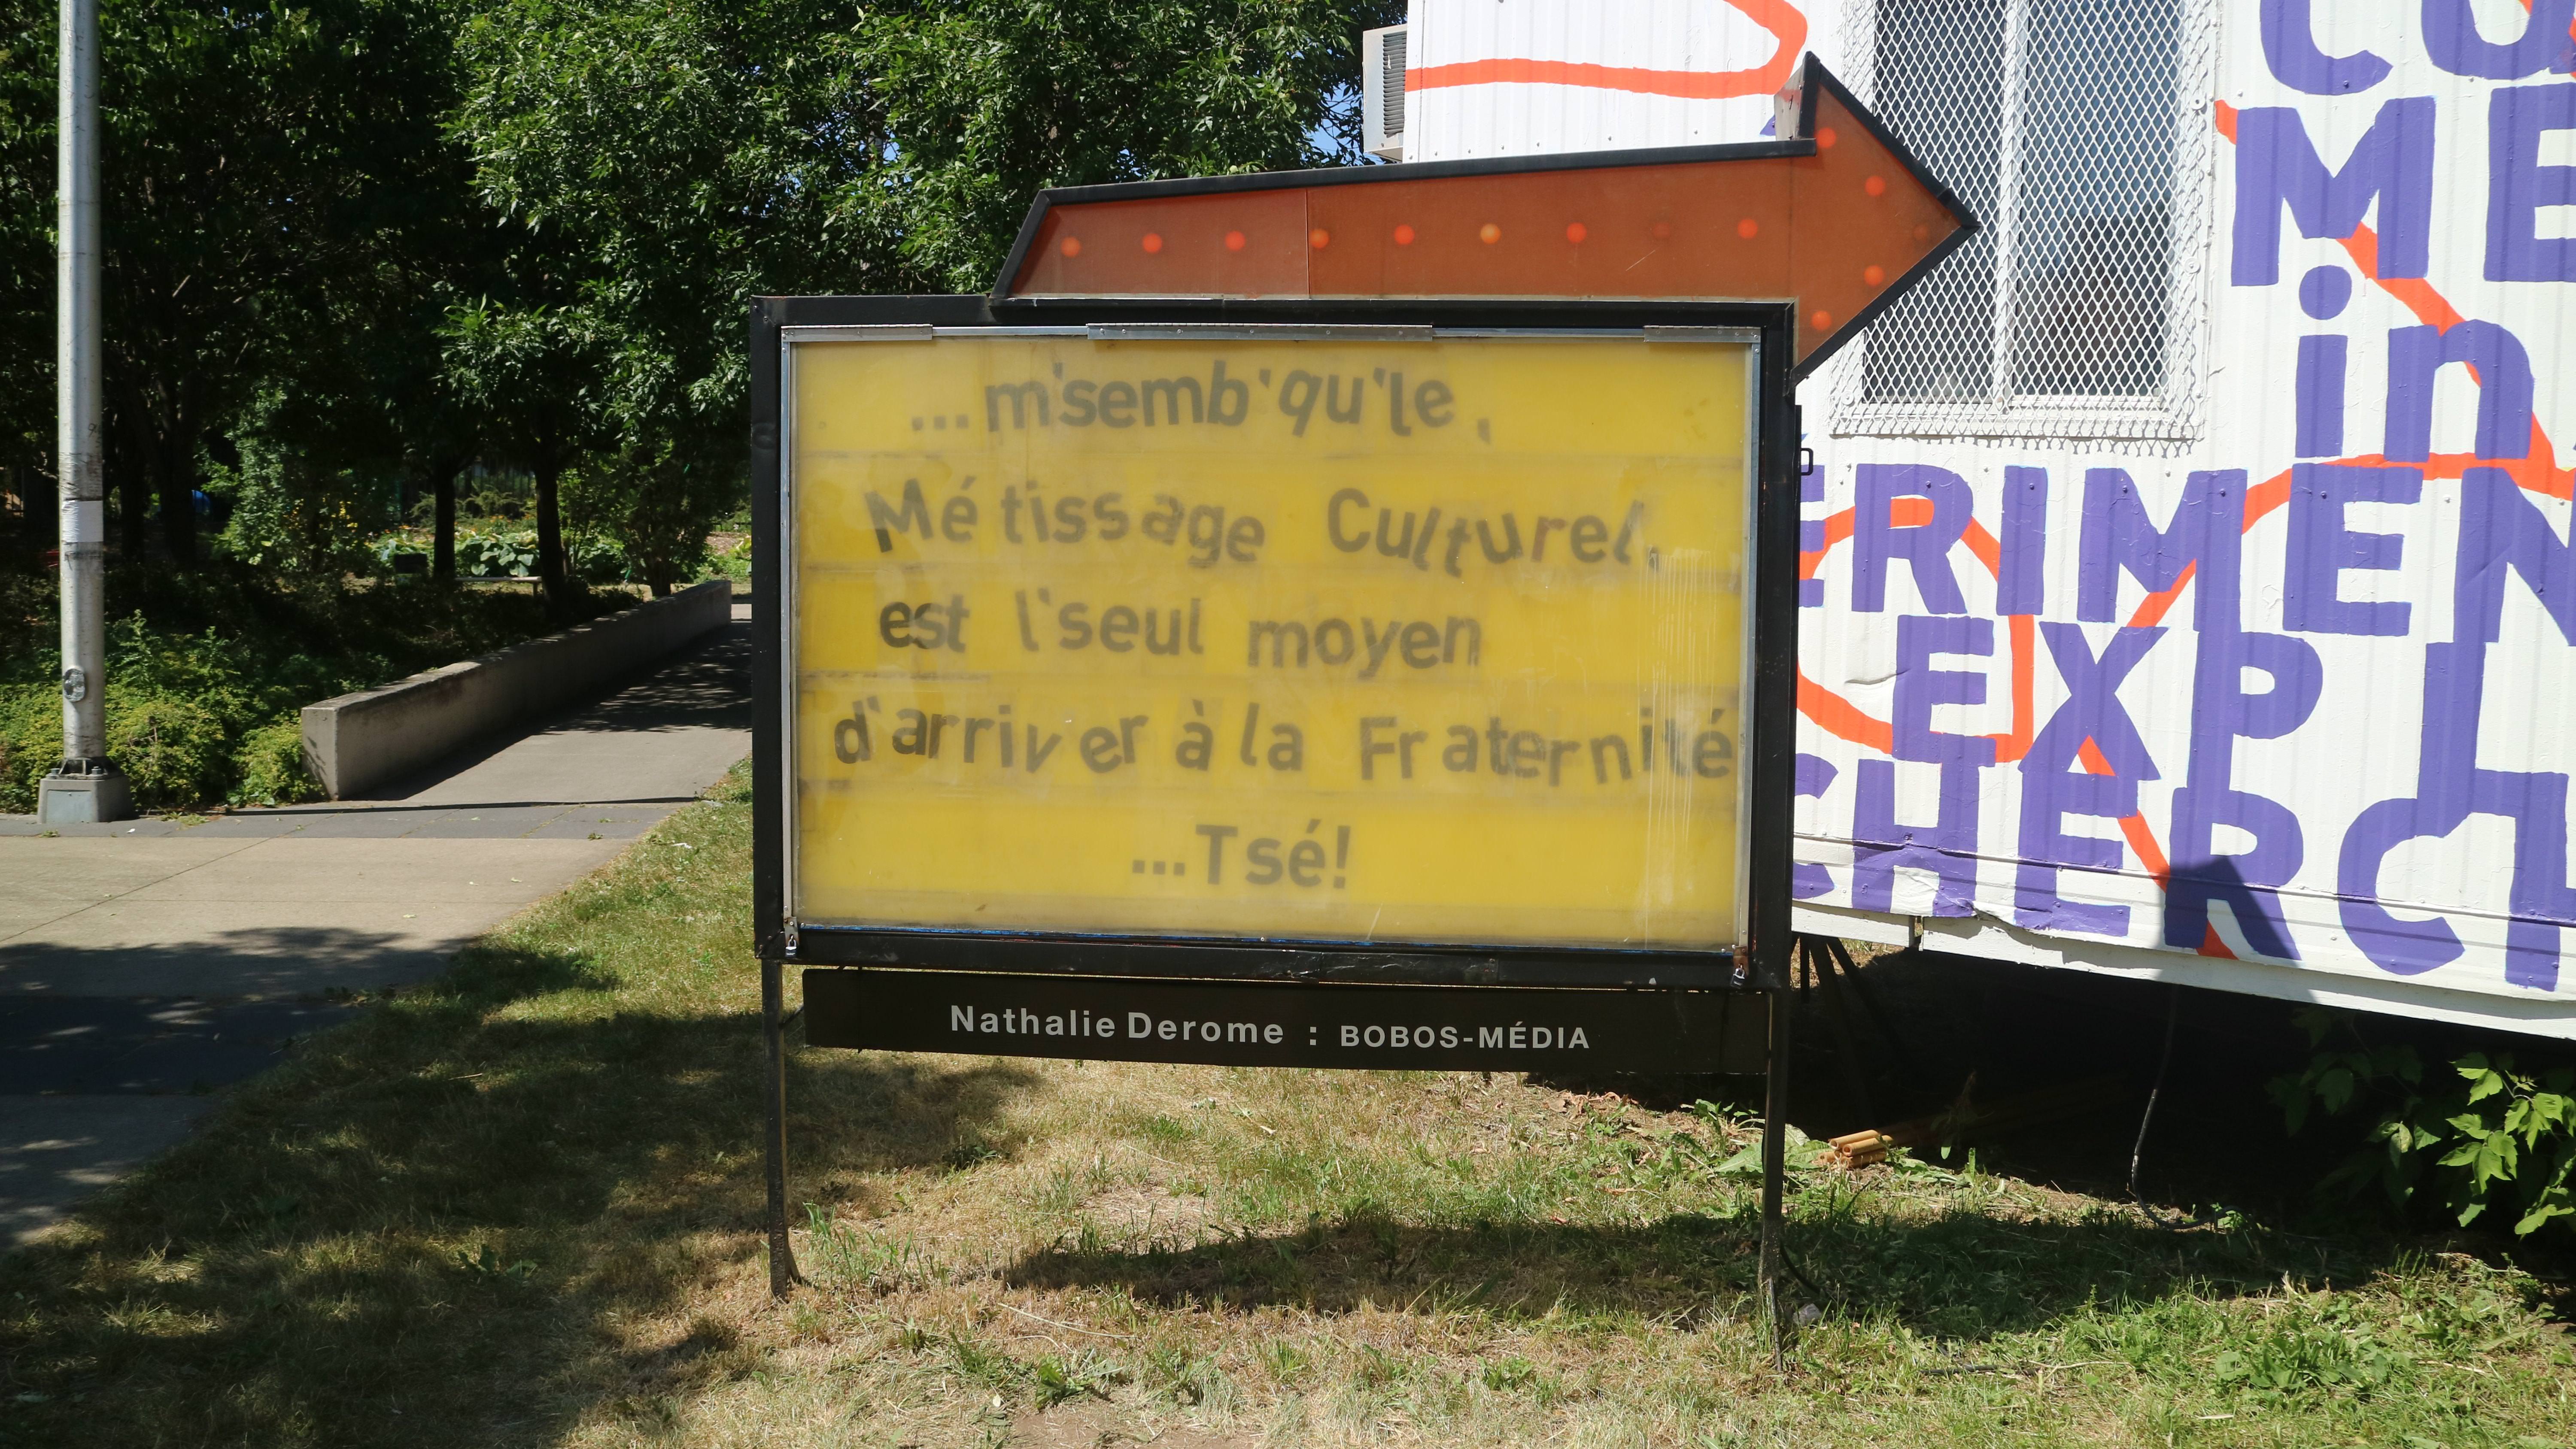 ...m'semb'qu'le,
Métissage Culturel,
est l'seul moyen
d'arriver à la Fraternité
...Tsé!
Nathalie Derome : BOBOS-MÉDIA
in
EXP